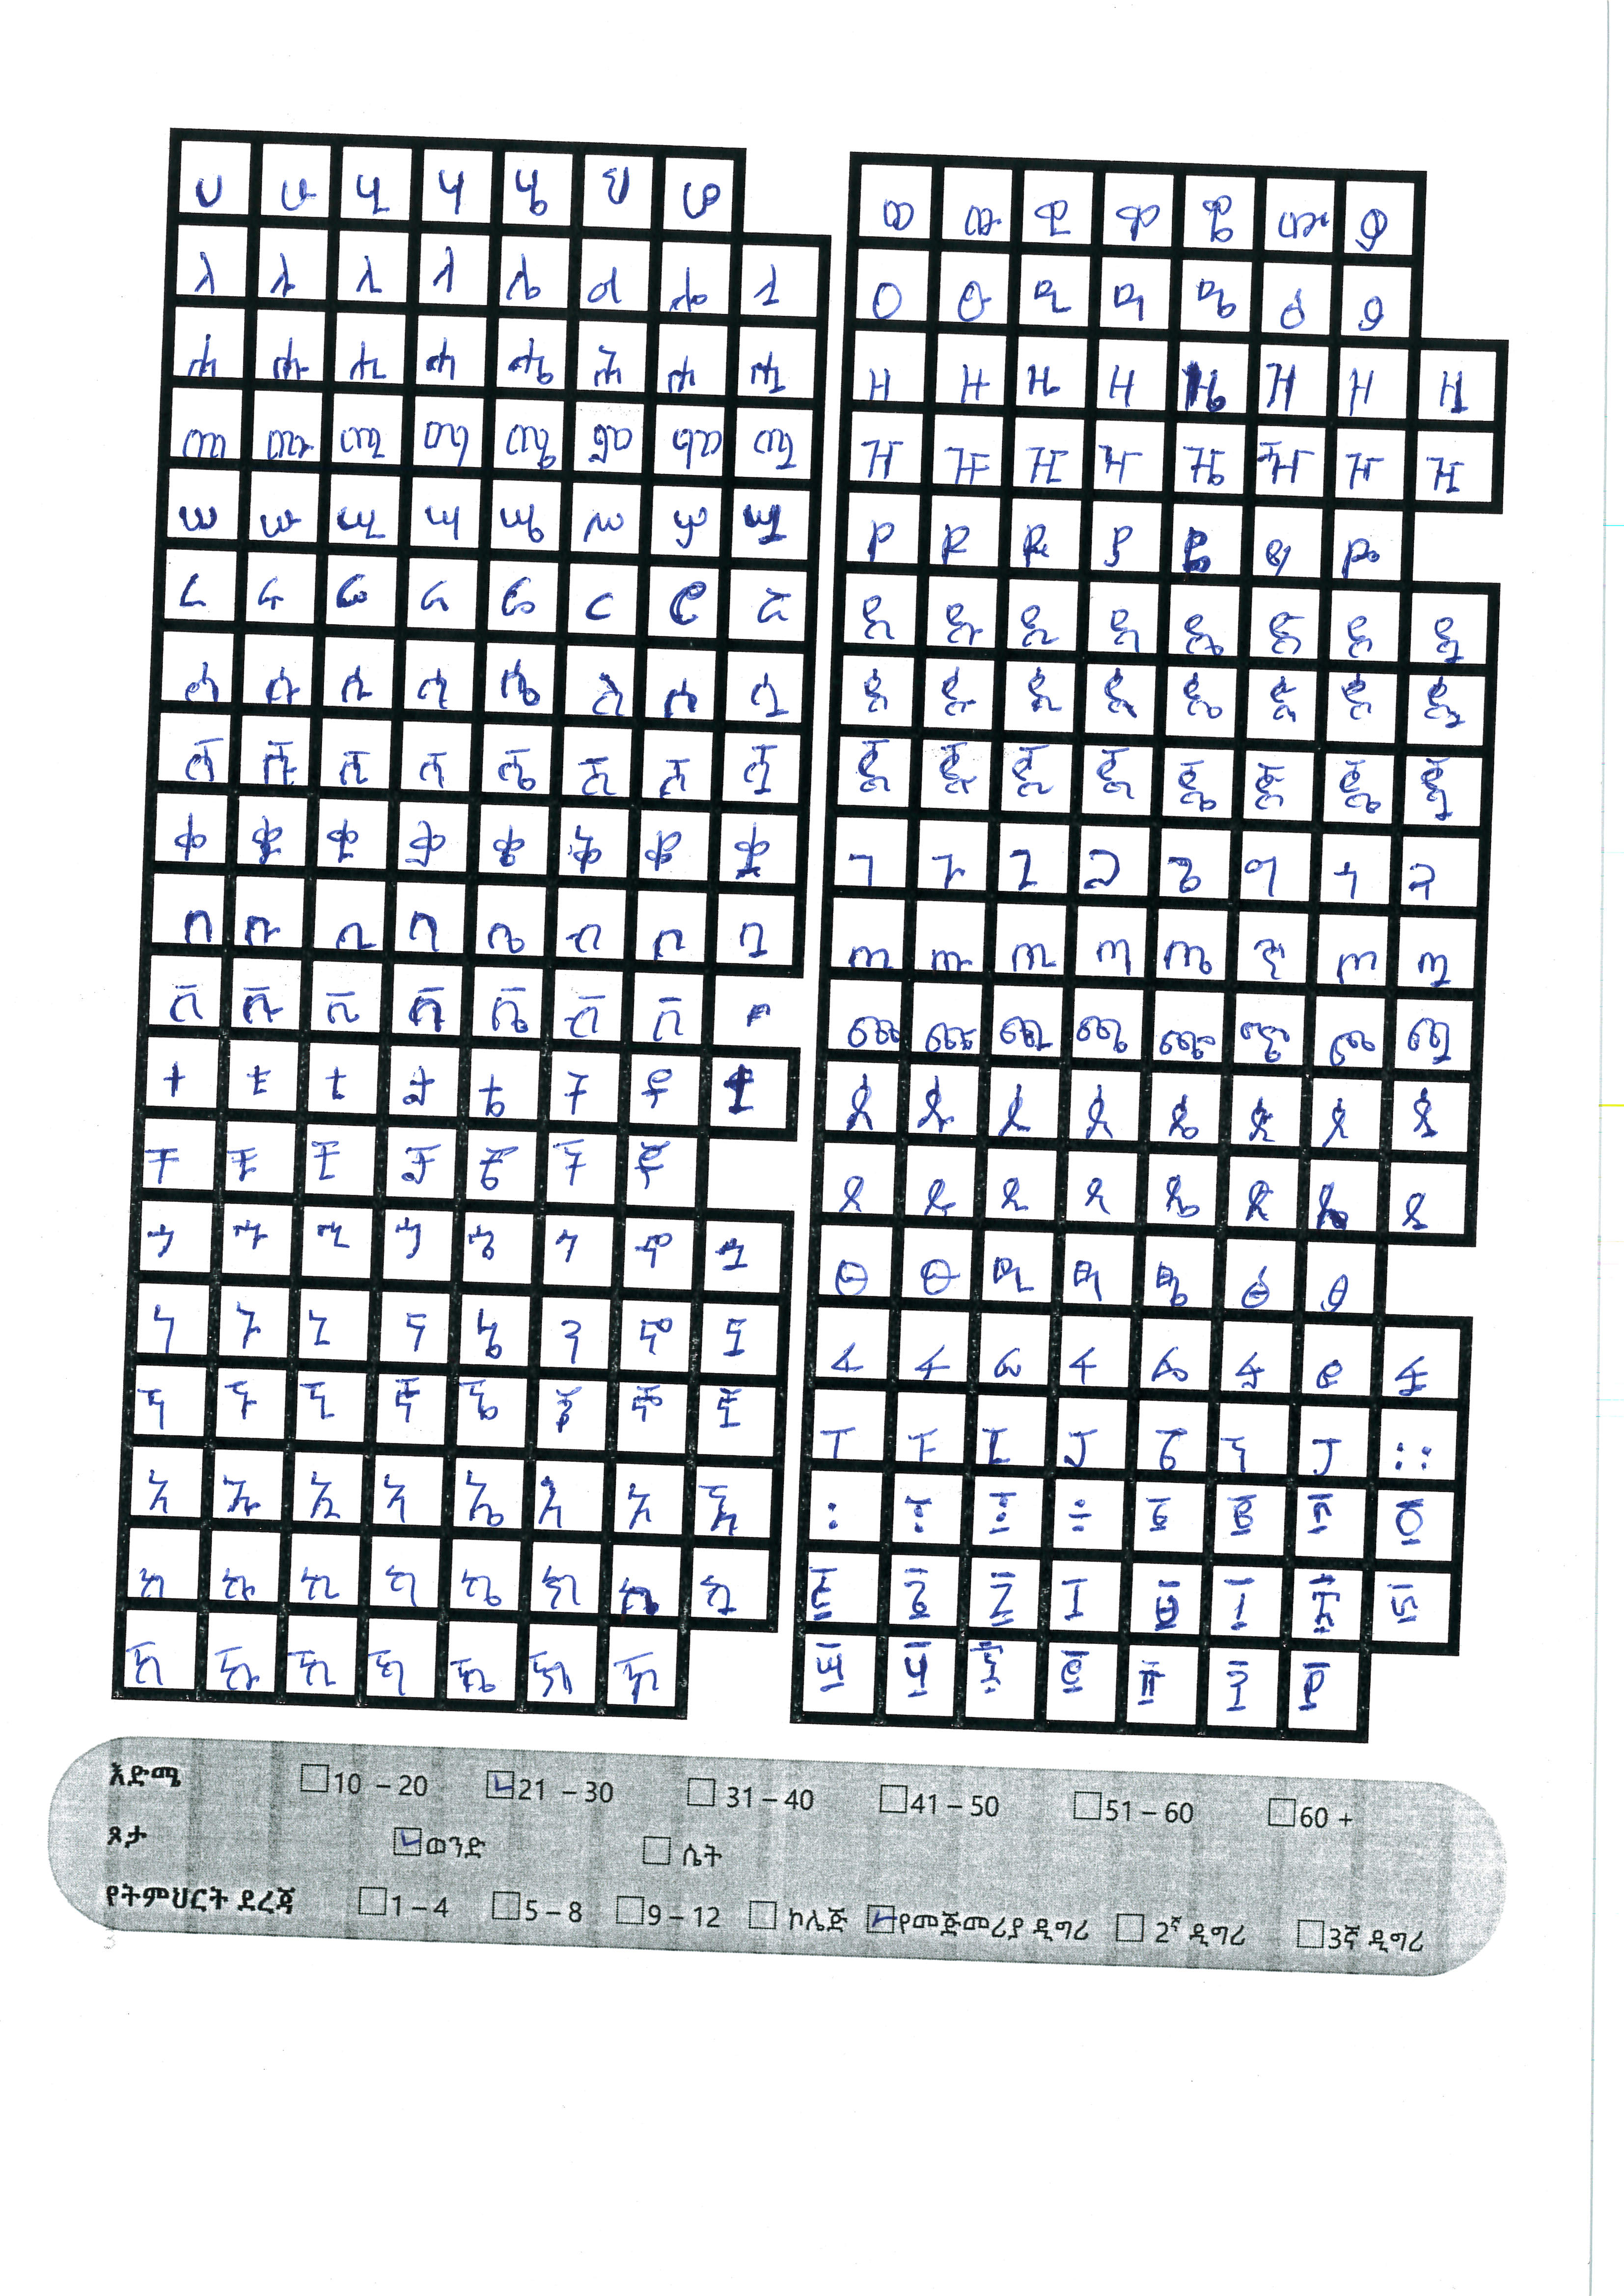 ሀ ሁ ሂ ሃ ሄ ህ ሆ
ለ ሉ ሊ ላ ሌ ል ሎ ሏ
ሐ ሑ ሒ ሓ ሔ ሕ ሖ ሗ
መ ሙ ሚ ማ ሜ ም ሞ ሟ
ሠ ሡ ሢ ሣ ሤ ሥ ሦ ሧ
ረ ሩ ሪ ራ ሬ ር ሮ ሯ
ሰ ሱ ሲ ሳ ሴ ስ ሶ ሷ
ሸ ሹ ሺ ሻ ሼ ሽ ሾ ሿ
ቀ ቁ ቂ ቃ ቄ ቅ ቆ ቋ
በ ቡ ቢ ባ ቤ ብ ቦ ቧ
ቨ ቩ ቪ ቫ ቬ ቭ ቮ
ተ ቱ ቲ ታ ቴ ት ቶ ቷ
ቸ ቹ ቺ ቻ ቼ ች ቾ
ኀ ኁ ኂ ኃ ኄ ኅ ኆ ኋ
ነ ኑ ኒ ና ኔ ን ኖ ኗ
ኘ ኙ ኚ ኛ ኜ ኝ ኞ ኟ
አ ኡ ኢ ኣ ኤ እ ኦ ኧ
ከ ኩ ኪ ካ ኬ ክ ኮ ኳ
ኸ ኹ ኺ ኻ ኼ ኽ ኾ
ወ ዉ ዊ ዋ ዌ ው ዎ
ዐ ዑ ዒ ዓ ዔ ዕ ዖ
ዘ ዙ ዚ ዛ ዜ ዝ ዞ ዟ
ዠ ዡ ዢ ዣ ዤ ዥ ዦ ዧ
የ ዩ ዪ ያ ዬ ይ ዮ
ደ ዱ ዲ ዳ ዴ ድ ዶ ዷ
ጀ ጁ ጂ ጃ ጄ ጅ ጆ ጇ
ገ ጉ ጊ ጋ ጌ ግ ጎ ጓ
ጠ ጡ ጢ ጣ ጤ ጥ ጦ ጧ
ጨ ጩ ጪ ጫ ጬ ጭ ጮ ጯ
ጰ ጱ ጲ ጳ ጴ ጵ ጶ ጷ
ጸ ጹ ጺ ጻ ጼ ጽ ጾ ጿ
ፀ ፁ ፂ ፃ ፄ ፅ ፆ
ፈ ፉ ፊ ፋ ፌ ፍ ፎ ፏ
ፐ ፑ ፒ ፓ ፔ ፕ ፖ ።
እድሜ 10 – 20 21 – 30 31 – 40 41 – 50 51 – 60 60 +
ጾታ ወንድ ሴት
የትምህርት ደረጃ 1 – 4 5 – 8 9 – 12 ኮሌጅ የመጀመሪያ ዲግሪ 2ኛ ዲግሪ 3ኛ ዲግሪ